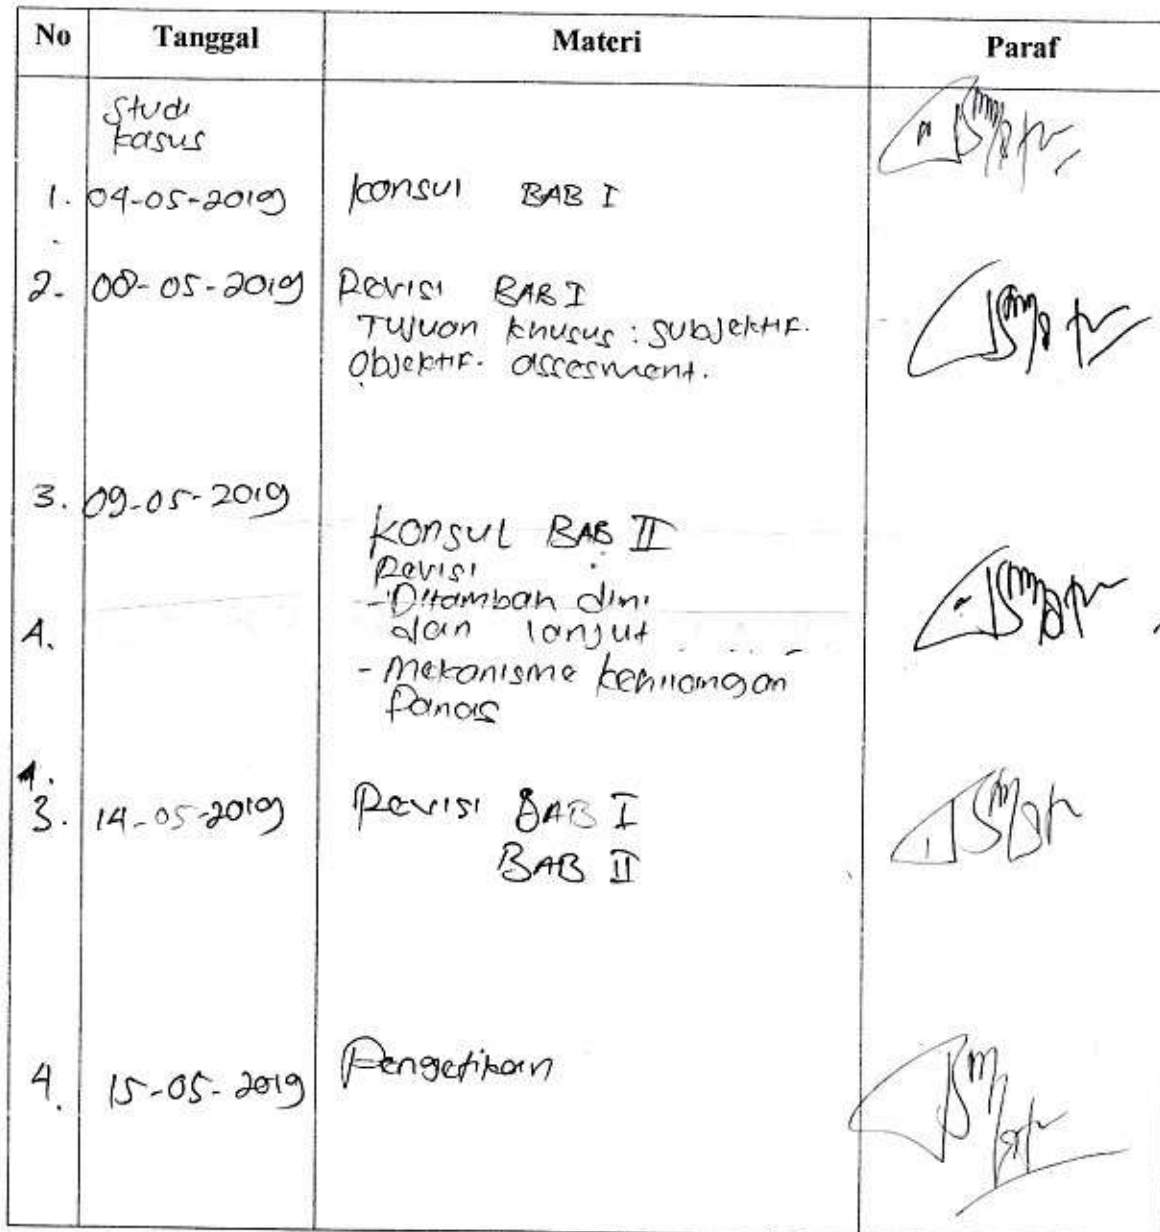 No Tanggal Materi Paraf
Studi
kasus
1. 04-05-2019 konsul BAB I
2. 08-05-2019 Revisi BAB I
Tujuan khusus : subjektif.
Objektif. assesment.
3. 09-05-2019
konsul BAB II
Revisi
- Ditambah dini
dan lanjut
4.
- Mekanisme kehilangan
Panas
3. 14-05-2019 Revisi BAB I
BAB II
4. 15-05-2019 Pengetikan